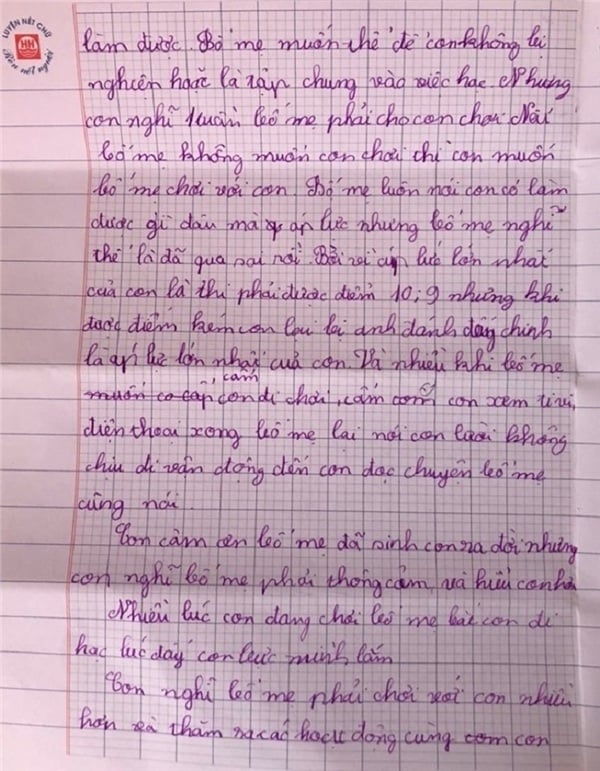 LUYỆN NÉT CHỮ
Rèn nết người
làm được. Bố mẹ muốn thế để con không bị
nghiện hoặc là tập chung vào việc học. Nhưng
con nghĩ 1 tuần bố mẹ phải cho con chơi. Nếu
bố mẹ không muốn con chơi thì con muốn
bố mẹ chơi với con. Bố mẹ luôn nói con có làm
được gì đâu mà áp lực nhưng bố mẹ nghĩ
thế là đã qua sai rồi. Bởi vì áp lực lớn nhất
của con là thi phải được điểm 10; 9 nhưng khi
được điểm kém con lại bị anh đánh đấy chính
là áp lực lớn nhất của con. Và nhiều khi bố mẹ
muốn co cấp, cấm con đi chơi, cấm com con xem ti vi,
điện thoại xong bố mẹ lại nói con lười không
chịu đi vận động đến con đọc chuyện bố mẹ
cũng nói.
Con cảm ơn bố mẹ đã sinh con ra đời nhưng
con nghĩ bố mẹ phải thông cảm, và hiểu con
Nhiều lúc con đang chơi bố mẹ bắt con đi
học lúc đấy con bực mình lắm
Con nghĩ bố mẹ phải chơi với con nhiều
hơn và thăm ra các hoạt động cùng com con